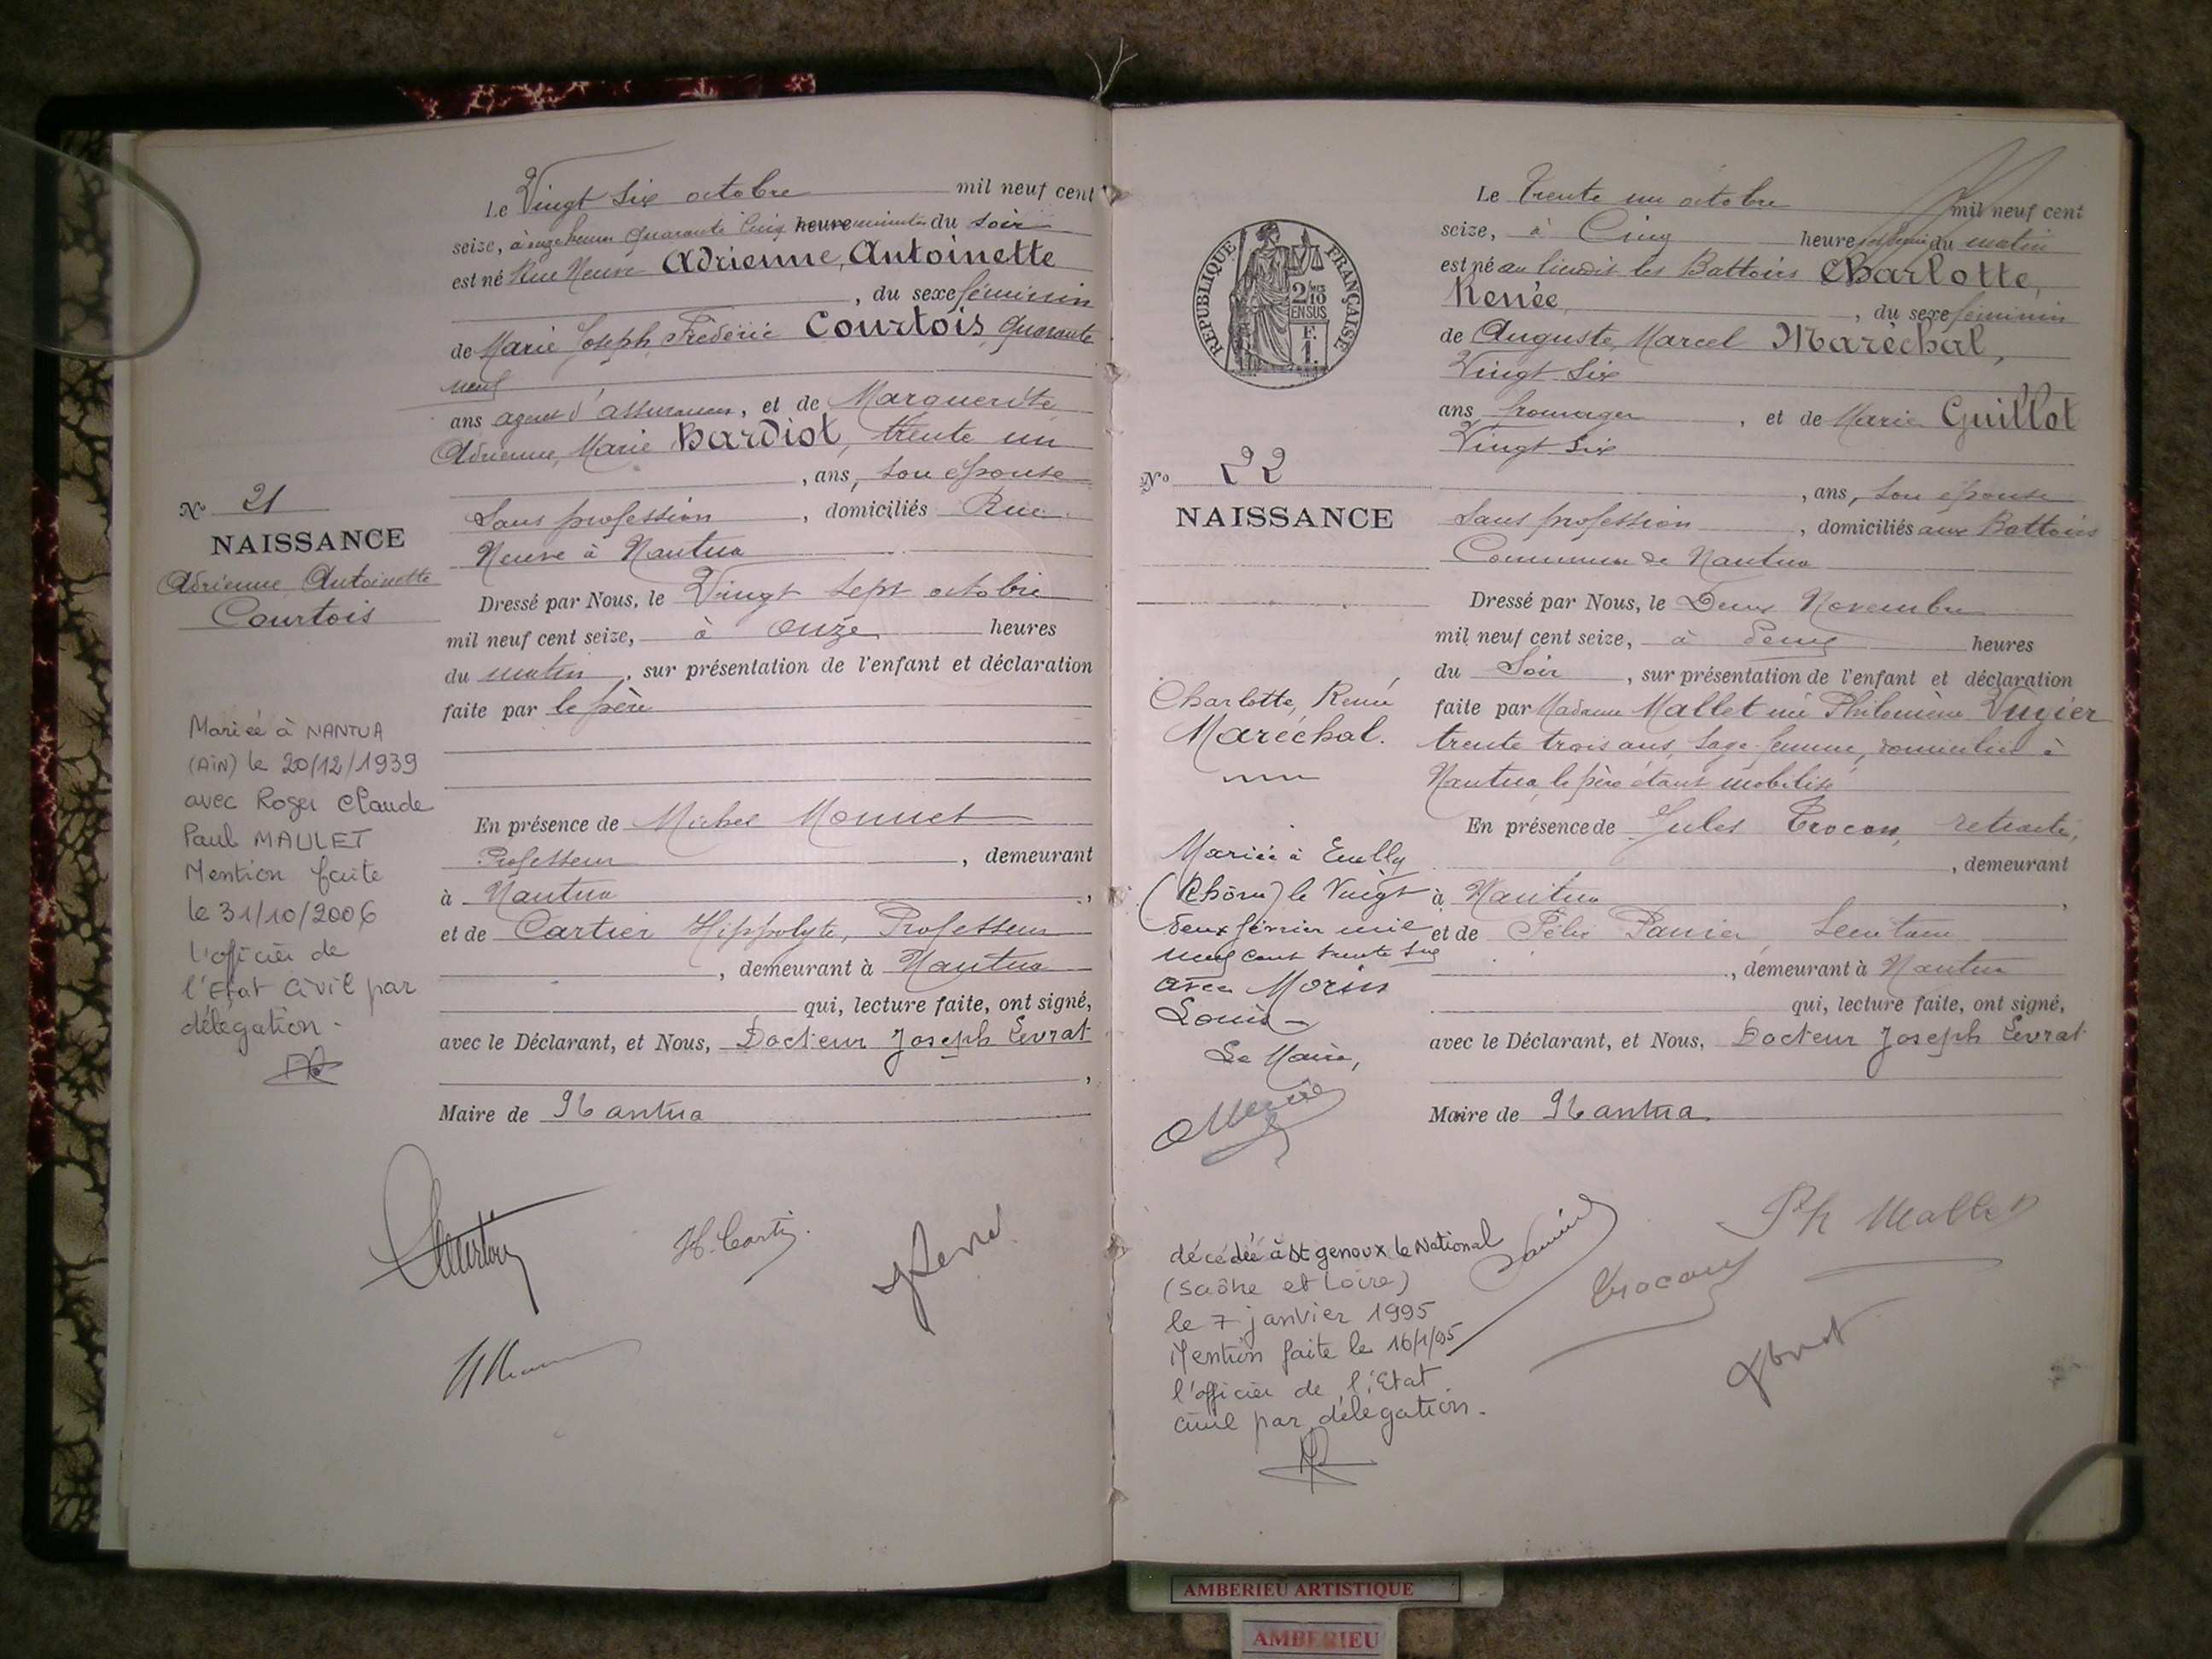 Le Vingt six octobre mil neuf cent
seize, à onze heures quarante cinq heure minutes du soir
est né Rue Neuve Adrienne, Antoinette
, du sexe féminin
de Marie Joseph, Frédéric Courtois, quarante
neuf
ans agent d'assurances, et de Marguerite
Adrienne, Marie Bardiot, trente un
, ans, son épouse
Sans profession, domiciliés Rue
Neuve à Nantua
Dressé par Nous, le Vingt sept octobre
mil neuf cent seize, à onze heures
du matin, sur présentation de l'enfant et déclaration
faite par le père
En présence de Michel Monnet
Professeur, demeurant
à Nantua,
et de Cartier Hippolyte, Professeur
, demeurant à Nantua
qui, lecture faite, ont signé,
avec le Déclarant, et Nous, Docteur Joseph Levrat
,
Maire de Nantua
No 21
NAISSANCE
Adrienne Antoinette
Courtois
Mariée à NANTUA
(AIN) le 20/12/1939
avec Roger Claude
Paul MAULET
Mention faite
le 31/10/2006
L'officier de
l'Etat civil par
délégation.
H. Cartier
Le trente un octobre mil neuf cent
seize, à Cinq heure et demie du matin
est né au lieudit les Battoirs Charlotte,
Renée, du sexe féminin
de Auguste, Marcel Maréchal,
Vingt six
ans fromager, et de Marie Guillot
Vingt six
, ans, son épouse
Sans profession, domiciliés aux Battoirs
Commune de Nantua
Dressé par Nous, le Deux Novembre
mil neuf cent seize, à deux heures
du Soir, sur présentation de l'enfant et déclaration
faite par Madame Mallet née Philomène Vuyier
trente trois ans, sage femme, domiciliée à
Nantua, le père étant mobilisé
En présence de Jules Trocon, retraité,
, demeurant
à Nantua,
et de Félix Panier
, demeurant à Nantua
qui, lecture faite, ont signé,
avec le Déclarant, et Nous, Docteur Joseph Levrat
Maire de Nantua
RÉPUBLIQUE FRANÇAISE
2/10
EN SUS
F.
1.
No 22
NAISSANCE
Charlotte, Renée
Maréchal.
Mariée à Ecully
(Rhône) le Vingt
deux février mil
neuf cent trente six
avec Morin
Louis
Le Maire,
décédée à St genoux le National
(Saône et Loire)
le 7 janvier 1995
Mention faite le 16/1/95
l'officier de l'Etat
civil par délégation.
Ph Mallet
Trocon
AMBERIEU ARTISTIQUE
AMBERIEU